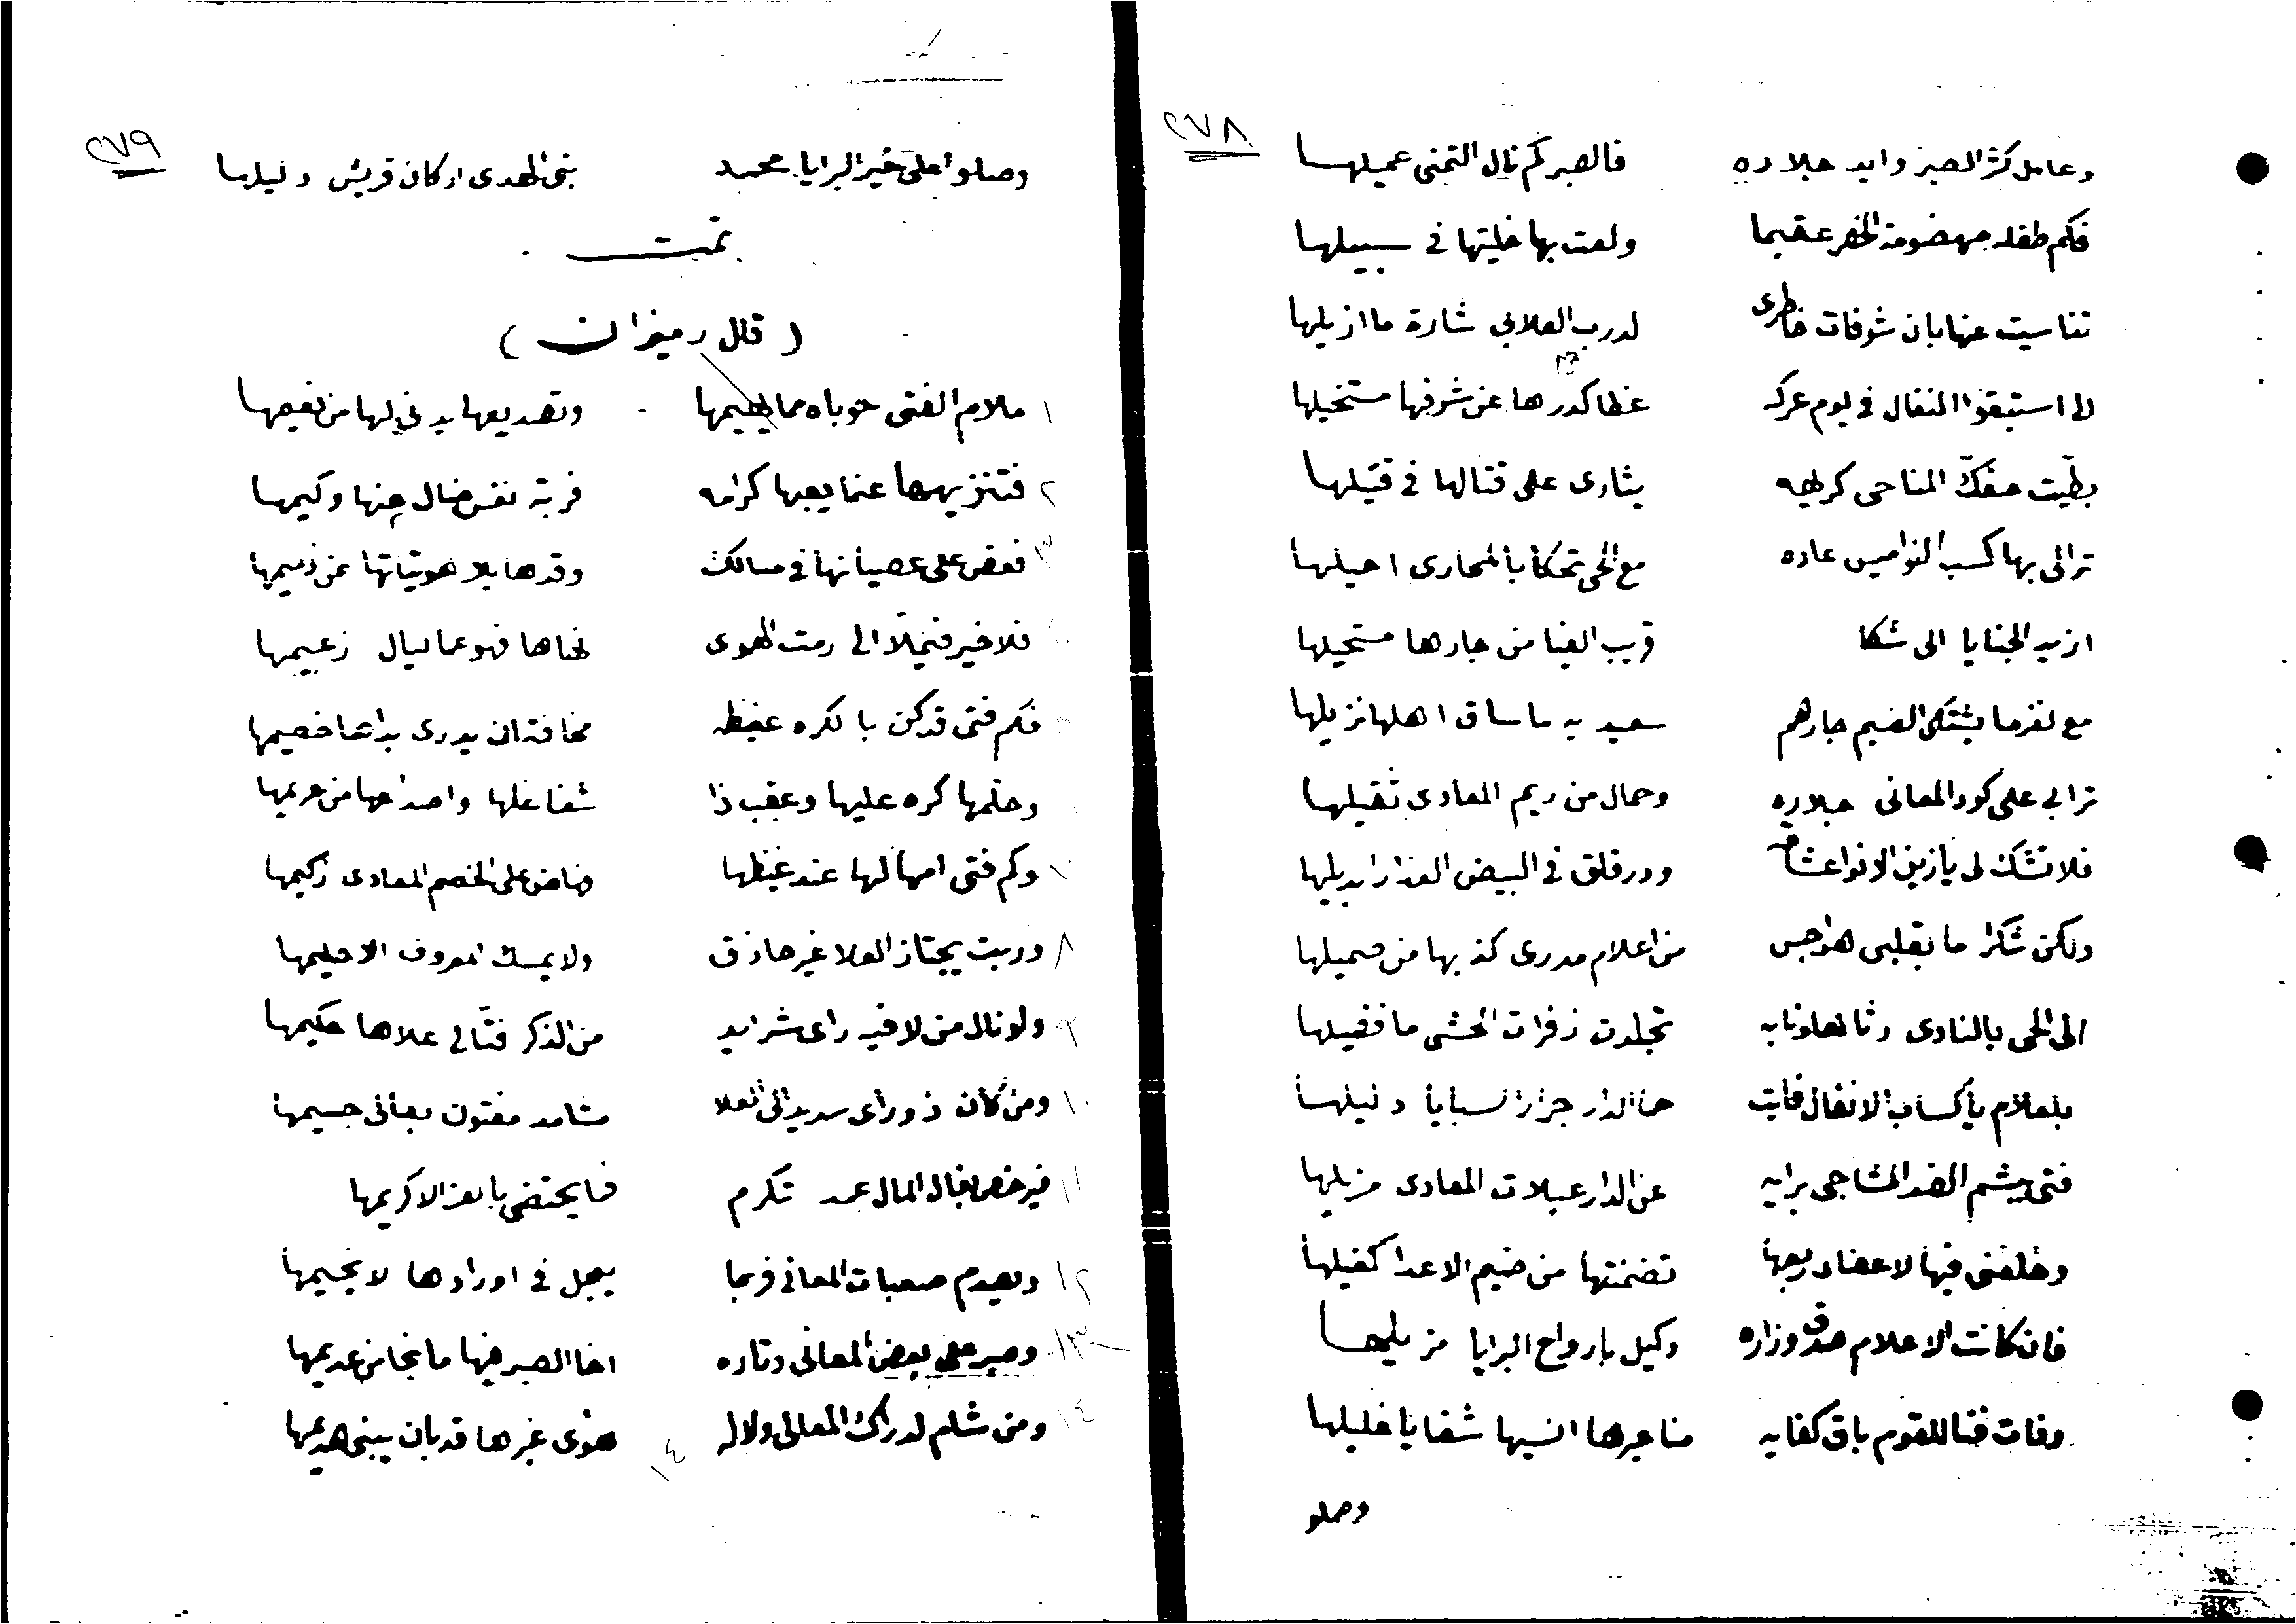 ٢٧٨
وعامل كثر الصبر وايد جلاده فالصبر كم نال التمنى عميلها
فكم طفله مهضومة الخصر عقبما ولعت بها خليتها في سبيلها
تناسيت عنها بان شوفات خاطرى لدرب العلا لي شارة ما ازيلها
لى استبقوا النفال في يوم عركه غطا كدرها عن شوفها مستخيلها
بطيت المناحى كريهه يثارى على قتالها في قتيلها
ترالى بها كسب النواميس عاده مع الحى تحكا بالمحارى احيلها
ازيد الجنايا الى شكا قريب الغبا من جارها مستحيلها
مع لغرما يشتكى الضيم جارهم سعيد به ما ساق اهلها نزيلها
ترالي على كود المعانى جلاده وحمال من ريم المعادى ثقيلها
فلا تشك لى يا زين الانوا عشاقه ودر قلق في البيض العذارا بديلها
ولكن شكرا ما بقلبى هواجس من اعلام مدرى كذبها من صميلها
الى الحى بالنادى رثا لها ونابه تجلدت زفرات الحشى ما فضيلها
بلعلام يا كساب الانفال فايت حما الدار جزار السبايا دليلها
فتى يشم الضد المشاجى برايه عن الدار عيلات المعادى مزيلها
وخلفنى فيها لاعضاد ربعها تضمنتها من ضيم الاعدا كفيلها
فان كانت الاعلام صدق وزاره وكيل بارواح البرايا مزيلها
وفات فنا للقوم باق كفايه مناعيرها انسيها شفايا غليلها
وصلو
٢٧٩
وصلوا على خير البرايا محمد بنى الهدى اركان قريش دليلها
تمت
( قال رميزان )
١ ملام الفتى حوباه مما يضيمها وتصديعها يدني لها من نعيمها
٢ فتنزيهها عنما يعبها كرامه فربة نفس ضال منها وكيمها
٣ فعض على عصيانها في مسالك وقدها بلا هوتياتها عن ذميمها
فلا خير فيمن لا الى رمت الهوى نحاها فهو عما ليال زعيمها
فكم فتى قد كن بالكره غيظه مخافة ان يدرى بداها خصيمها
وحلمها كره عليها وعقب ذا شفا غلها واصداحها من حريمها
٧ وكم فتى امهالها عند غيظها ضاض على الخصم المعادى زكيمها
٨ وربت يجتاز العلا غير حاذق ولا يمسك المعروف الا حليمها
ولو نال من لا فيه راى شرايد من الذكر فتالي علاها حكيمها
١٠ ومن كان ذو راى سديد الى العلا مفتون بعانى جسيمها
١١ فيرخص بغال المال عمد تكرم فما يحتضى بالعز الا كريمها
١٢ ويهدم صعبات المعاني فربما يعجل في اورادها لا يخيمها
١٣ وصبر على بعض المعانى وتاره اخا الصبر فيها ما نجا من عديمها
١٤ ومن شام لدراك المعالى ولا له هوى غيرها قد بان يبنى هديمها
١٤